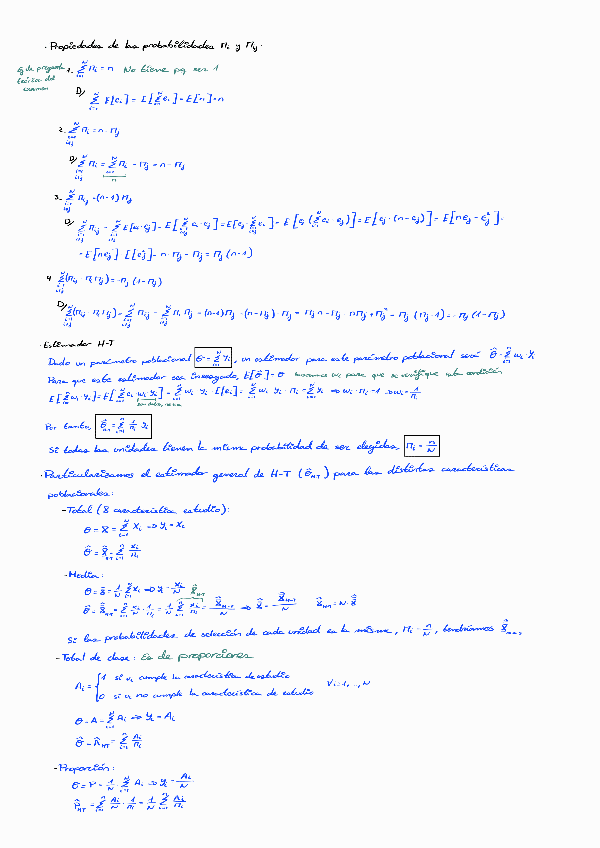 · Propiedades de las probabilidades Πi y Πij.
Ej de pregunta teórica del examen
1. Σ_{i=1}^{N} Πi = n No tiene pq ser 1
D/
Σ_{i=1}^{N} E[ei] = E[Σ_{i=1}^{N} ei] = E[n] = n
2. Σ_{i≠j}^{N} Πi = n - Πj
D/ Σ_{i≠j}^{N} Πi = Σ_{i=1}^{N} Πi - Πj = n - Πj
3. Σ_{i≠j}^{N} Πij = (n-1) Πj
D/ Σ_{i≠j}^{N} Πij = Σ_{i≠j}^{N} E[ei·ej] = E[Σ_{i≠j}^{N} ei·ej] = E[ej Σ_{i≠j}^{N} ei] = E[ej (Σ_{i=1}^{N} ei - ej)] = E[ej·(n-ej)] = E[nej - ej²] =
= E[nej] - E[ej²] = n·Πj - Πj = Πj (n-1)
4. Σ_{i≠j}^{N} (Πij - ΠiΠj) = -Πj (1-Πj)
D/ Σ_{i≠j}^{N} (Πij - ΠiΠj) = Σ_{i≠j}^{N} Πij - Σ_{i≠j}^{N} Πi Πj = (n-1)Πj - (n-Πj)·Πj = Πj n - Πj - nΠj + Πj² = Πj (Πj - 1) = -Πj (1-Πj)
· Estimador H-T
Dado un parámetro poblacional θ = Σ_{i=1}^{N} Yi, un estimador para este parámetro poblacional será θ̂ = Σ_{i=1}^{n} wi Yi
Para que este estimador sea insesgado, E[θ̂] = θ buscamos wi para que se verifique esta condición
E[Σ_{i=1}^{n} wi·Yi] = E[Σ_{i=1}^{N} ei wi Yi] = Σ_{i=1}^{N} wi·Yi·E[ei] = Σ_{i=1}^{N} wi·Yi·Πi = Σ_{i=1}^{N} Yi ⇒ wi·Πi = 1 ⇒ wi = 1/Πi
Por tanto, θ̂HT = Σ_{i=1}^{n} 1/Πi Yi
Si todas las unidades tienen la misma probabilidad de ser elegidas, Πi = n/N
· Particularizamos el estimador general de H-T (θ̂HT) para las distintas características
poblacionales:
- Total (X característica estudio):
θ = X = Σ_{i=1}^{N} Xi ⇒ Yi = Xi
θ̂ = X̂HT = Σ_{i=1}^{n} Xi/Πi
- Media:
θ = X̄ = 1/N Σ_{i=1}^{N} Xi ⇒ Yi = Xi/N X̂H-T
θ̂ = X̄̂HT = Σ_{i=1}^{n} Xi/N · 1/Πi = 1/N Σ_{i=1}^{n} Xi/Πi = X̂H-T/N ⇒ X̄̂ = X̂H-T/N X̂H-T = N·X̄̂
Si las probabilidades de selección de cada unidad es la misma, Πi = n/N, tendríamos
- Total de clase: Es de proporciones
Ai = { 1 si ui cumple la característica de estudio
0 si ui no cumple la característica de estudio ∀i=1,...,N
θ = A = Σ_{i=1}^{N} Ai ⇒ Yi = Ai
θ̂ = ÂHT = Σ_{i=1}^{n} Ai/Πi
- Proporción:
θ = P = 1/N · Σ_{i=1}^{N} Ai ⇒ Yi = Ai/N
P̂HT = Σ_{i=1}^{n} Ai/N · 1/Πi = 1/N Σ_{i=1}^{n} Ai/Πi